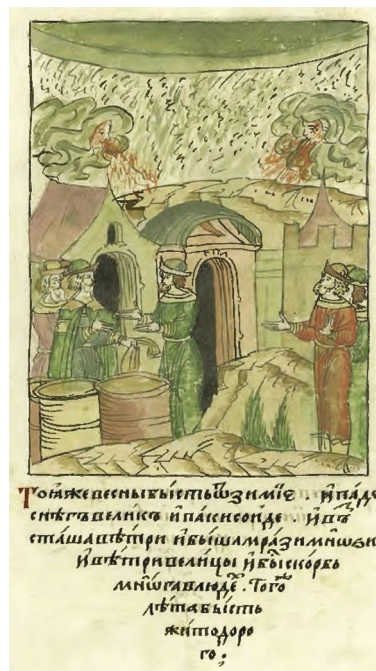 Тоѧ҃же весны бысть ѿзимїе . и҆ паде
снѣгъ великъ и҆ паки сонде . и҆ въ
сташа вѣтри и҆ быша мрази мнѡѕи
и҆ вѣтри велицы и҆ бы́ скорбь
мнѡ́га в люде҃ . Того҃
лѣта бысть
жито доро
го ⁏